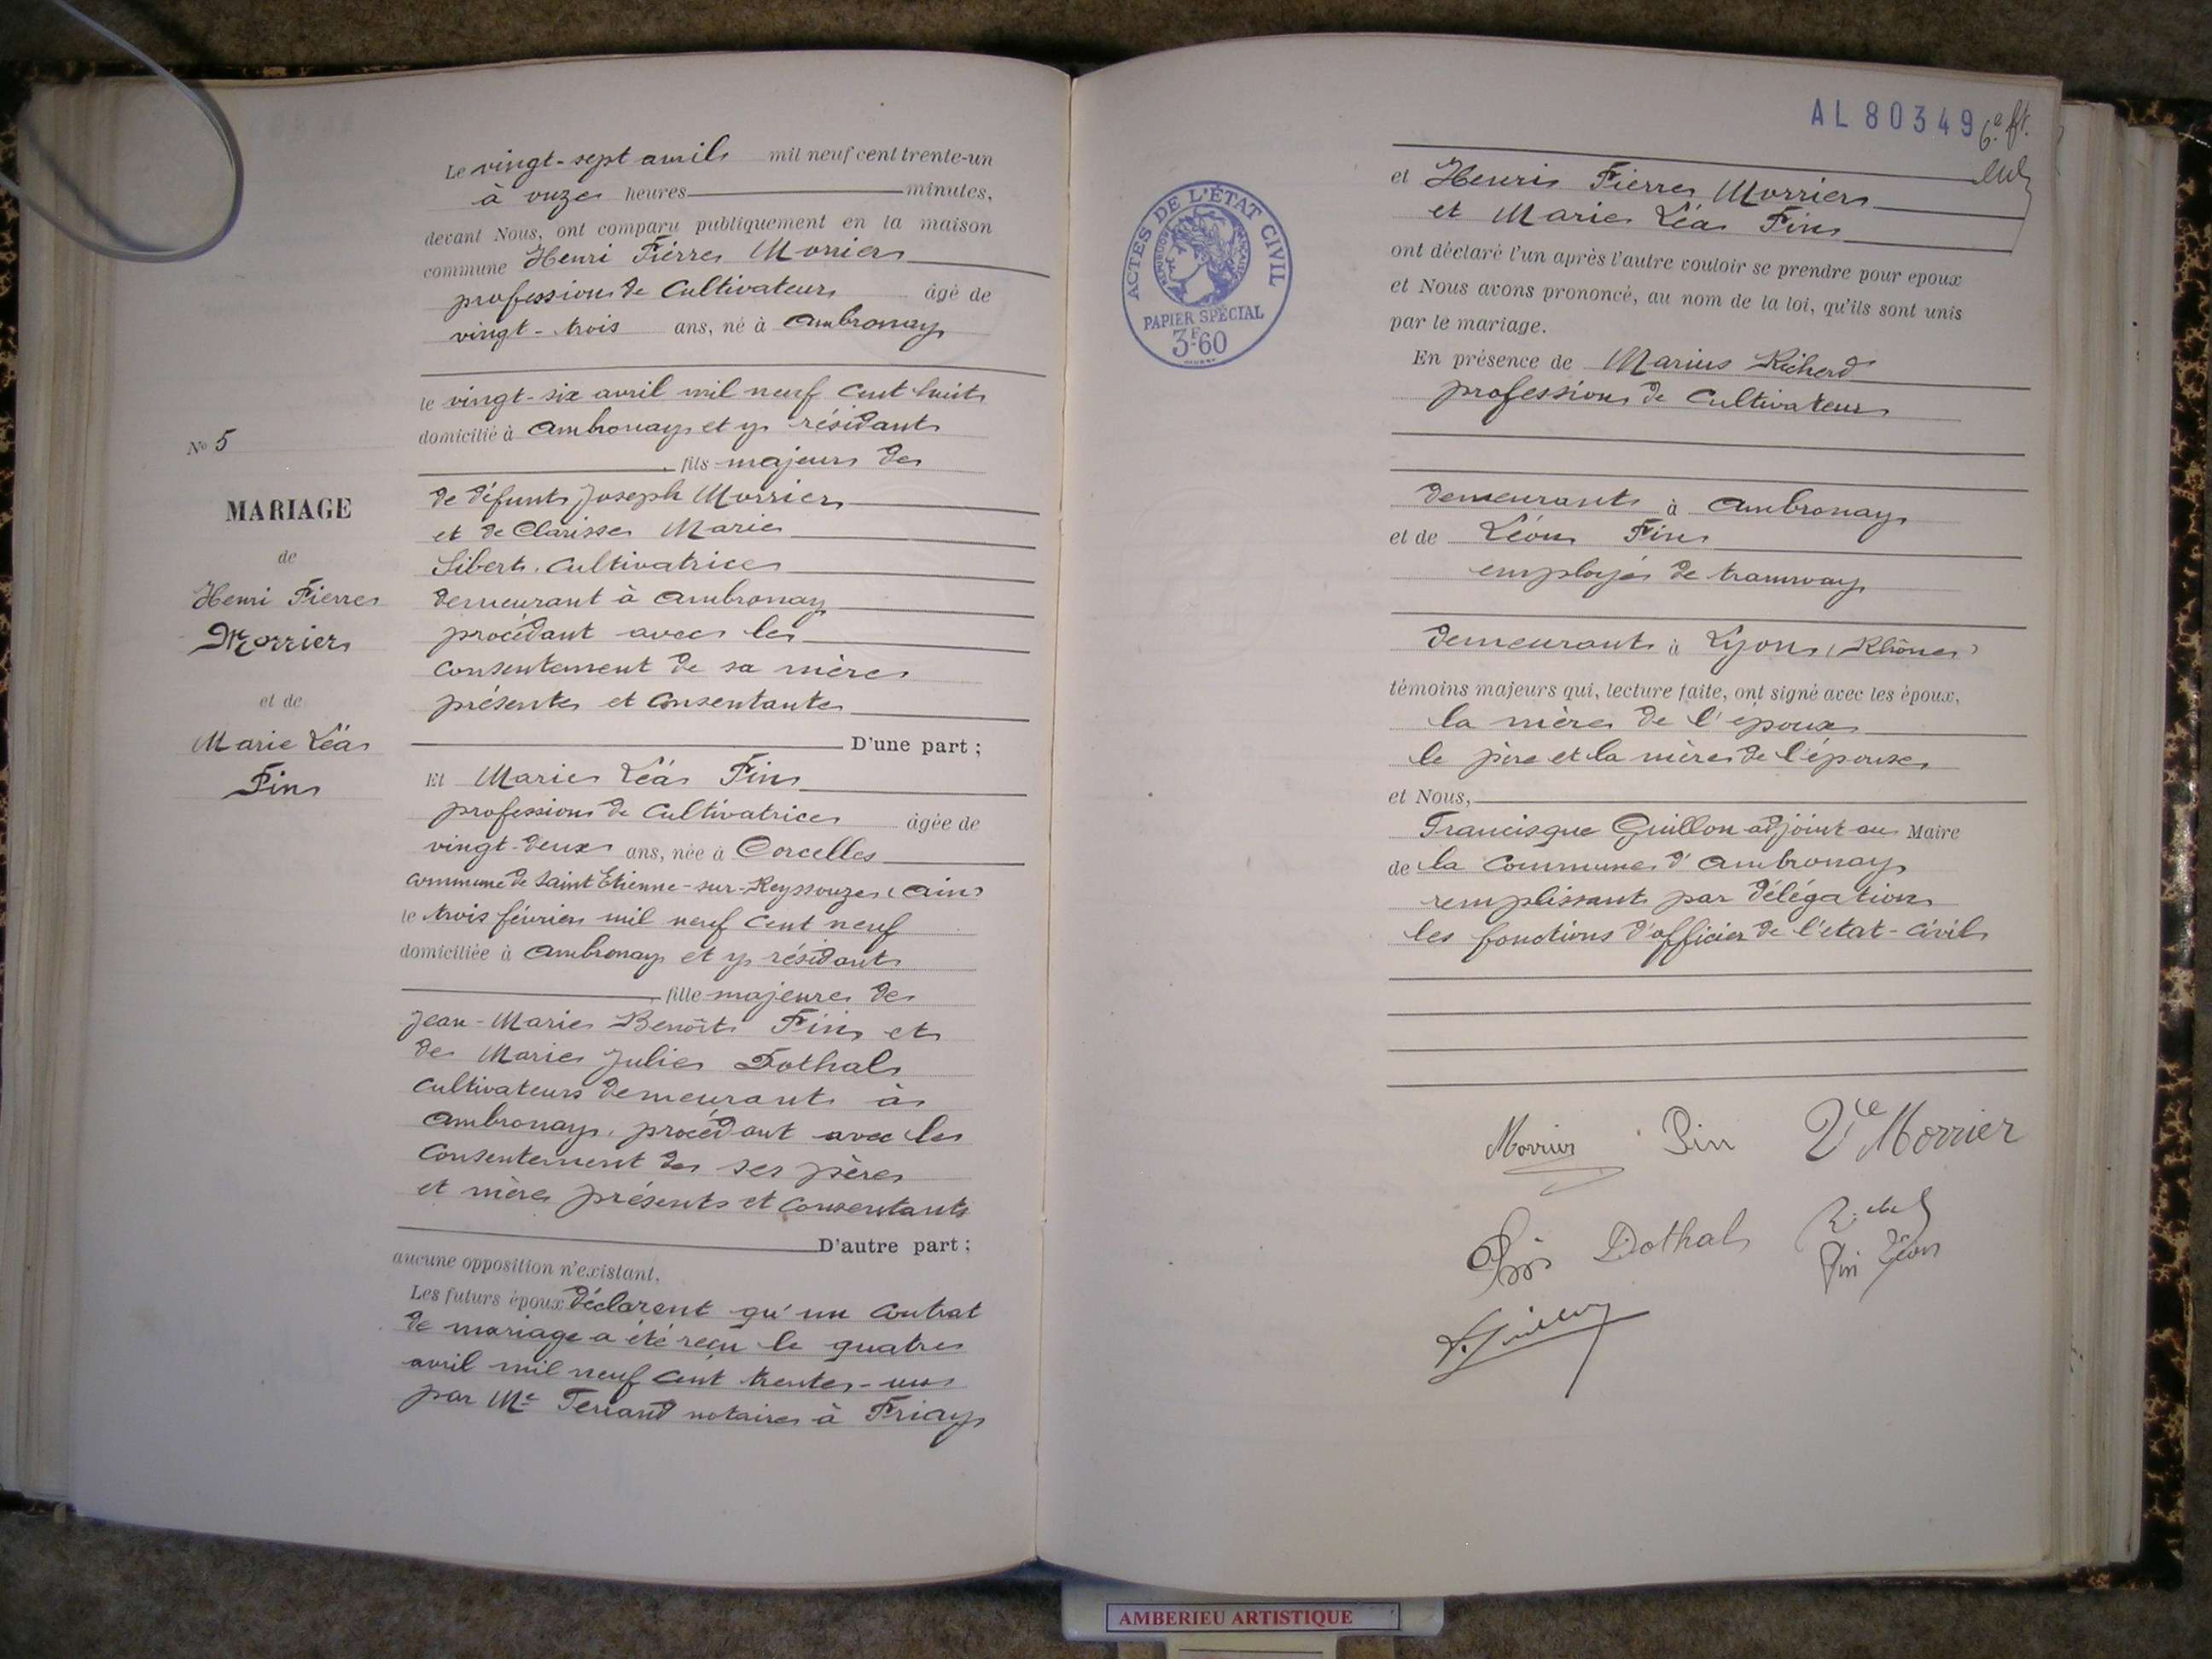 Le vingt-sept avril mil neuf cent trente-un
à onze heures minutes,
devant Nous, ont comparu publiquement en la maison
commune Henri Pierre Morrier
profession de Cultivateur âgé de
vingt-trois ans, né à Ambronay
le vingt-six avril mil neuf cent huit
domicilié à Ambronay et y résidant
fils majeur de
de défunt Joseph Morrier
et de Clarisse Marie
Sibert. Cultivatrice
demeurant à Ambronay
procédant avec le
consentement de sa mère
présente et consentante
D'une part ;
Et Marie Léa Pin
profession de Cultivatrice âgée de
vingt-deux ans, née à Corcelles
commune de Saint Etienne-sur-Reyssouze (Ain)
le trois février mil neuf cent neuf
domiciliée à Ambronay et y résidant
fille majeure de
Jean-Marie Benoît Pin et
de Marie Julie Dothal
cultivateurs demeurant à
Ambronay, procédant avec le
consentement de ses père
et mère présents et consentants
D'autre part ;
aucune opposition n'existant,
Les futurs époux déclarent qu'un contrat
de mariage a été reçu le quatre
avril mil neuf cent trente-un
par Me Ferrand notaire à Priay
No 5
MARIAGE
de
Henri Pierre
Morrier
et de
Marie Léa
Pin
AL 80349
6e ft.
ACTES DE L'ÉTAT CIVIL
RÉPUBLIQUE FRANÇAISE
PAPIER SPÉCIAL
3F60
et Henri Pierre Morrier
et Marie Léa Pin
ont déclaré l'un après l'autre vouloir se prendre pour epoux
et Nous avons prononcé, au nom de la loi, qu'ils sont unis
par le mariage.
En présence de Marius Richerd
profession de Cultivateur
demeurant à Ambronay
et de Léon Pin
employé de tramway
demeurant à Lyon (Rhône)
témoins majeurs qui, lecture faite, ont signé avec les époux,
la mère de l'époux
le père et la mère de l'épouse
et Nous,
Francisque Guillon adjoint au Maire
de la Commune d'Ambronay
remplissant par délégation
les fonctions d'officier de l'état-civil
Morrier Pin Ve Morrier
Pin Dothal
Pin Léon
AMBERIEU ARTISTIQUE